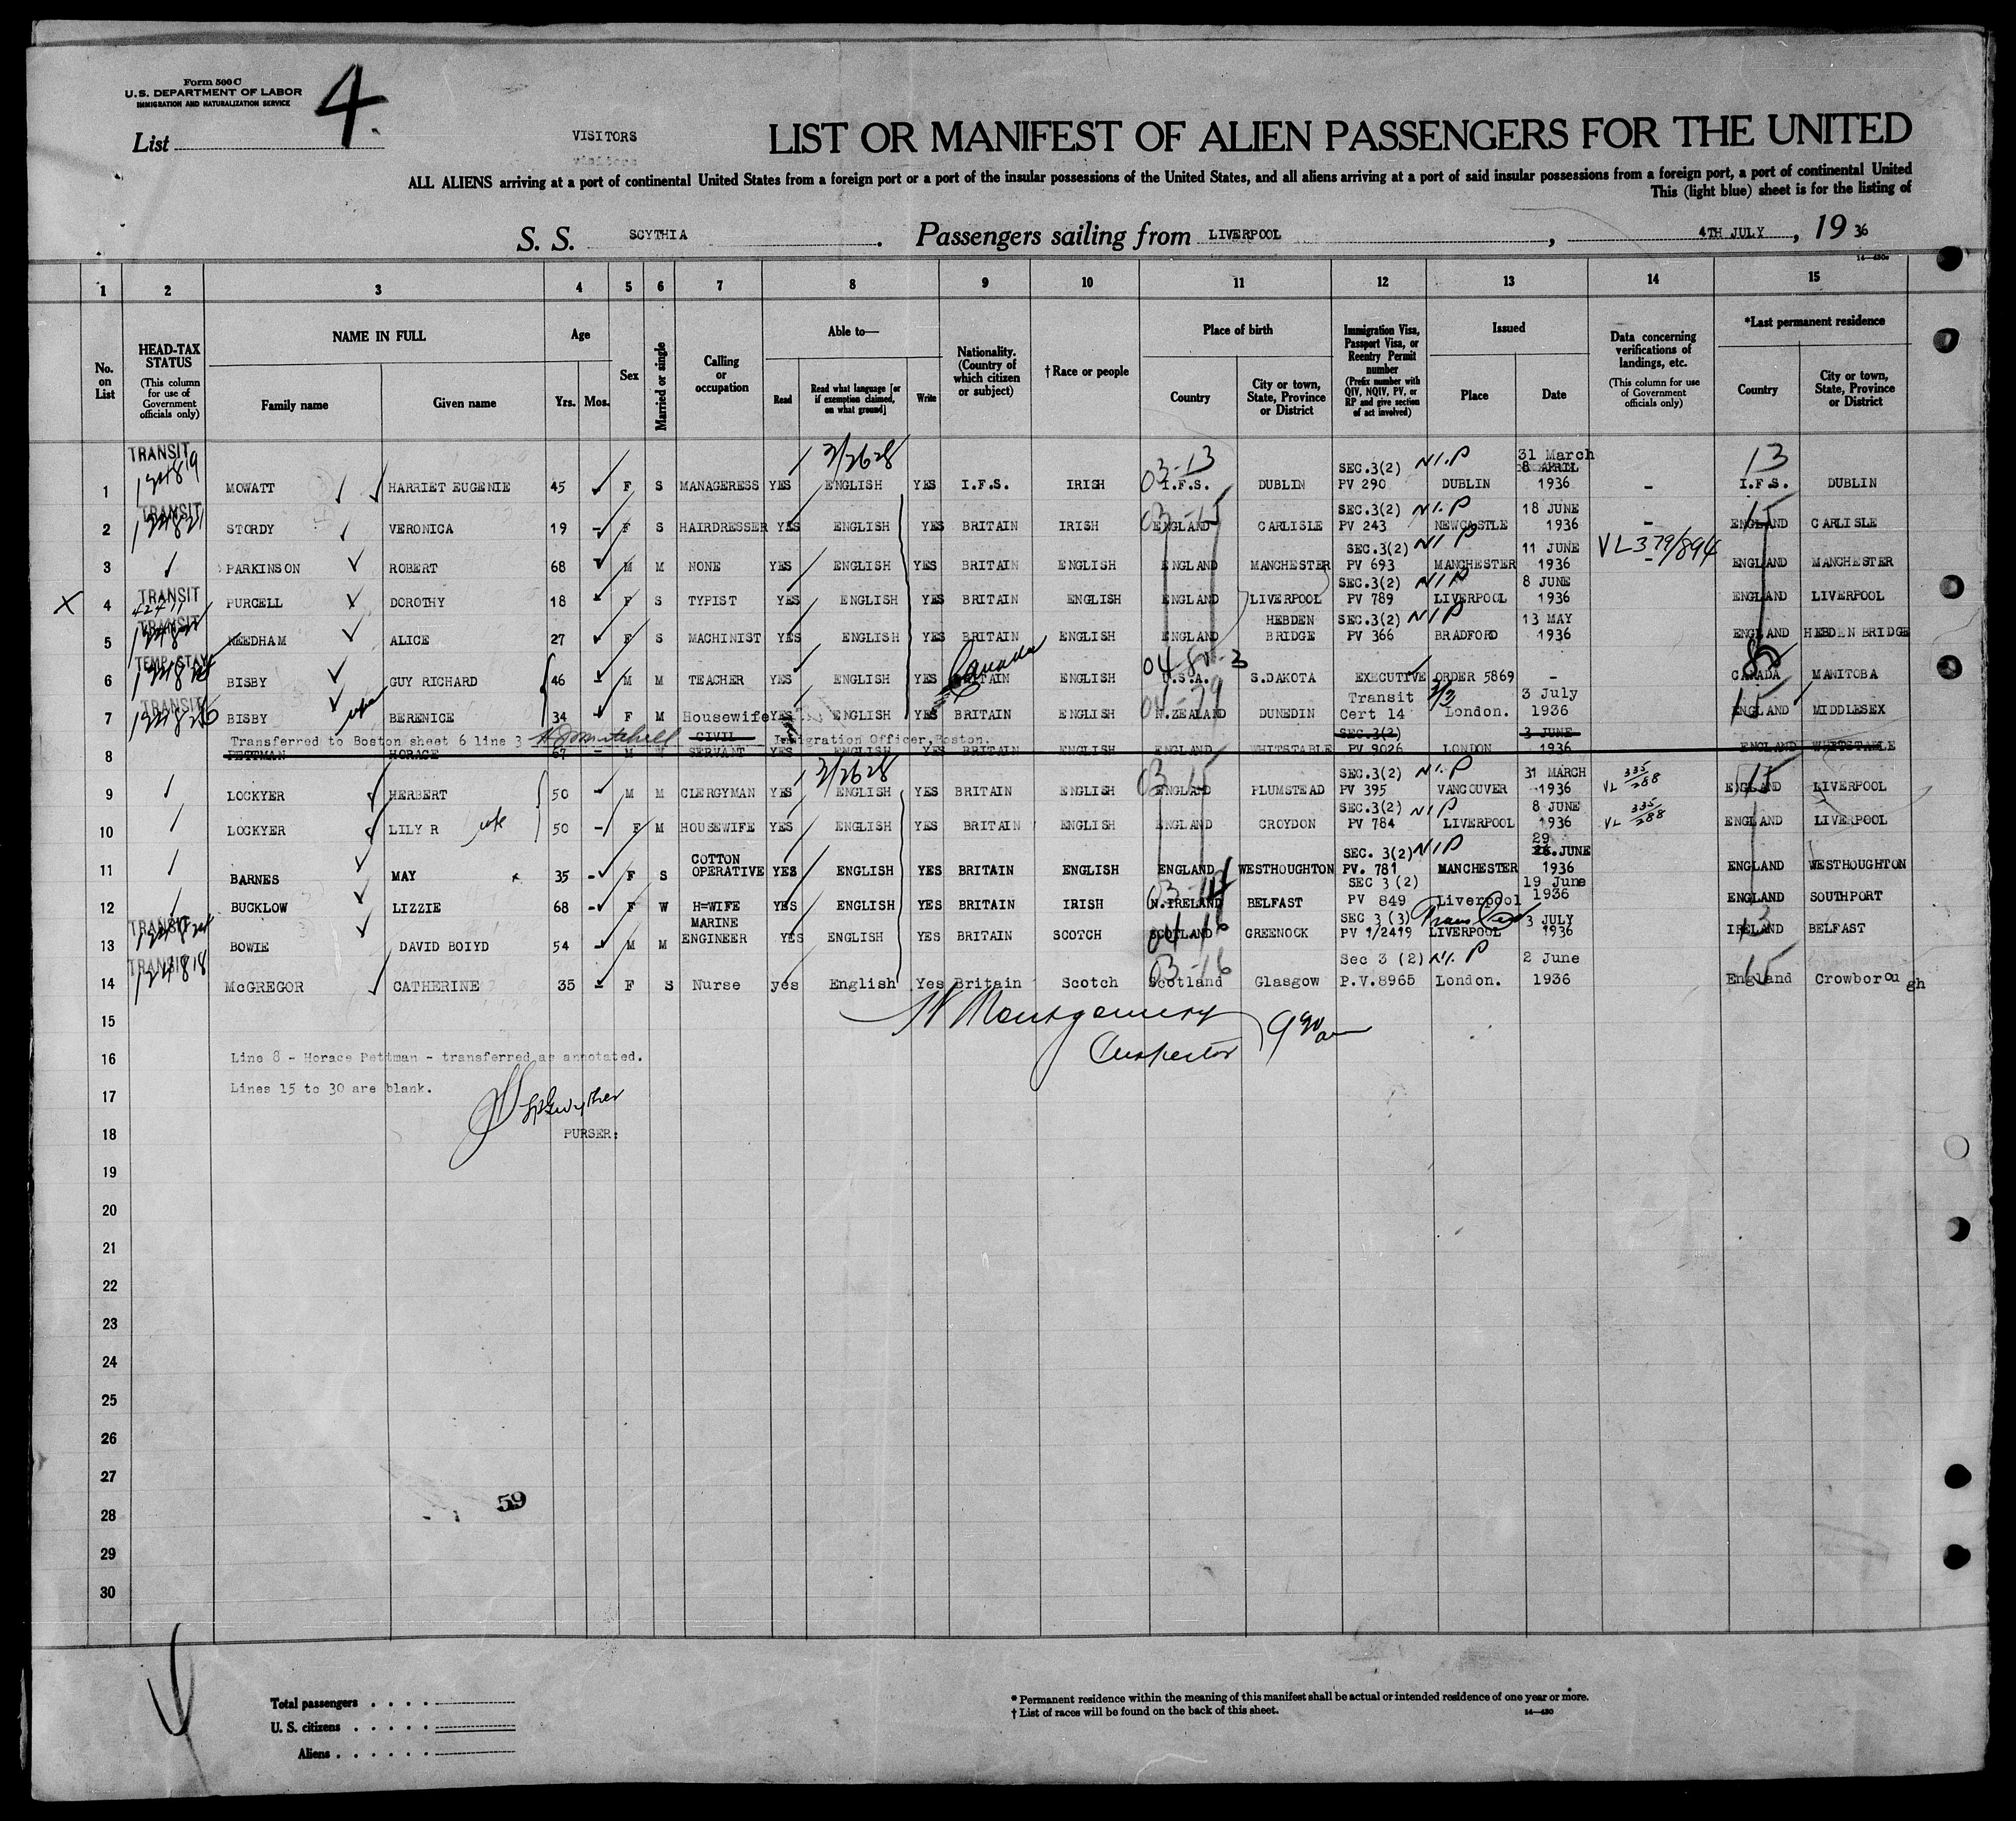 Form 500 C
U.S. DEPARTMENT OF LABOR
IMMIGRATION AND NATURALIZATION SERVICE
List 4.
VISITORS
visitors
LIST OR MANIFEST OF ALIEN PASSENGERS FOR THE UNITED
ALL ALIENS arriving at a port of continental United States from a foreign port or a port of the insular possessions of the United States, and all aliens arriving at a port of said insular possessions from a foreign port, a port of continental United
This (light blue) sheet is for the listing of
S. S. SCYTHIA. Passengers sailing from LIVERPOOL, 4TH JULY, 19 36
1 2 3 4 5 6 7 8 9 10 11 12 13 14 15
No. on List
HEAD-TAX STATUS (This column for use of Government officials only)
NAME IN FULL
Family name
Given name
Age
Yrs. Mos.
Sex
Married or single
Calling or occupation
Able to—
Read
Read what language [or if exemption claimed, on what ground]
Write
Nationality. (Country of which citizen or subject)
† Race or people
Place of birth
Country
City or town, State, Province or District
Immigration Visa, Passport Visa, or Reentry Permit number (Prefix number with QIV, NQIV, PV, or RP and give section of act involved)
Issued
Place
Date
Data concerning verifications of landings, etc. (This column for use of Government officials only)
*Last permanent residence
Country
City or town, State, Province or District
TRANSIT 3/2628 03-13 SEC.3(2) N.I.P 31 March 8 APRIL 13
1 MOWATT HARRIET EUGENIE 45 F S MANAGERESS YES ENGLISH YES I.F.S. IRISH I.F.S. DUBLIN PV 290 DUBLIN 1936 – I.F.S. DUBLIN
TRANSIT 03-15 SEC.3(2) N.I.P 18 JUNE 15
2 STORDY VERONICA 19 – F S HAIRDRESSER YES ENGLISH YES BRITAIN IRISH ENGLAND CARLISLE PV 243 NEWCASTLE 1936 – ENGLAND CARLISLE
SEC.3(2) N.I.P 11 JUNE VL 379/894
3 PARKINSON ROBERT 68 M M NONE YES ENGLISH YES BRITAIN ENGLISH ENGLAND MANCHESTER PV 693 MANCHESTER 1936 – ENGLAND MANCHESTER
TRANSIT SEC.3(2) N.I.P 8 JUNE
X 4 PURCELL DOROTHY 18 – F S TYPIST YES ENGLISH YES BRITAIN ENGLISH ENGLAND LIVERPOOL PV 789 LIVERPOOL 1936 ENGLAND LIVERPOOL
TRANSIT HEBDEN SEC.3(2) N.I.P 13 MAY
5 NEEDHAM ALICE 27 F S MACHINIST YES ENGLISH YES BRITAIN ENGLISH ENGLAND BRIDGE PV 366 BRADFORD 1936 ENGLAND HEBDEN BRIDGE
TEMP. STAY Canada
6 BISBY GUY RICHARD 46 – M M TEACHER YES ENGLISH YES BRITAIN ENGLISH U.S.A. S.DAKOTA EXECUTIVE ORDER 5869 – CANADA MANITOBA
TRANSIT 04-79 Transit 3 July 15
7 BISBY wife BERENICE 34 F M Housewife YES ENGLISH YES BRITAIN ENGLISH N.ZEALAND DUNEDIN Cert 14 London. 1936 ENGLAND MIDDLESEX
Transferred to Boston sheet 6 line 3 CIVIL Immigration Officer, Boston. SEC.3(2) 3 JUNE
8 PETTMAN HORACE 67 – M M SERVANT YES ENGLISH YES BRITAIN ENGLISH ENGLAND WHITSTABLE PV 9026 LONDON 1936 ENGLAND WHITSTABLE
3/2628 03-15 SEC.3(2) N.I.P 31 MARCH 335 15
9 LOCKYER HERBERT 50 – M M CLERGYMAN YES ENGLISH YES BRITAIN ENGLISH ENGLAND PLUMSTEAD PV 395 VANCOUVER 1936 VL 288 ENGLAND LIVERPOOL
SEC.3(2) N.I.P 8 JUNE 335
10 LOCKYER LILY R wife 50 – F M HOUSEWIFE YES ENGLISH YES BRITAIN ENGLISH ENGLAND CROYDON PV 784 LIVERPOOL 1936 VL 288 ENGLAND LIVERPOOL
COTTON SEC. 3(2) N.I.P 29 JUNE
11 BARNES MAY 35 – F S OPERATIVE YES ENGLISH YES BRITAIN ENGLISH ENGLAND WESTHOUGHTON PV. 781 MANCHESTER 1936 ENGLAND WESTHOUGHTON
SEC 3 (2) 19 June
12 BUCKLOW LIZZIE 68 – F W H=WIFE YES ENGLISH YES BRITAIN IRISH N.IRELAND BELFAST PV 849 Liverpool 1936 ENGLAND SOUTHPORT
TRANSIT MARINE 04 16 SEC 3 (3) 3 JULY 13
13 BOWIE DAVID BOIYD 54 – M M ENGINEER YES ENGLISH YES BRITAIN SCOTCH SCOTLAND GREENOCK PV 1/2419 LIVERPOOL 1936 IRELAND BELFAST
TRANSIT 03-16 Sec 3 (2) N.I.P 2 June 15
14 McGREGOR CATHERINE 35 – F S Nurse yes English Yes Britain Scotch Scotland Glasgow P.V.8965 London. 1936 England Crowborough
15 Montgomery
16 Line 8 - Horace Pettman - transferred as annotated. Inspector
17 Lines 15 to 30 are blank.
18 PURSER:
19
20
21
22
23
24
25
26
27
28 59
29
30
Total passengers . . . .
U. S. citizens . . . . .
Aliens . . . . . .
* Permanent residence within the meaning of this manifest shall be actual or intended residence of one year or more.
† List of races will be found on the back of this sheet. 14—430